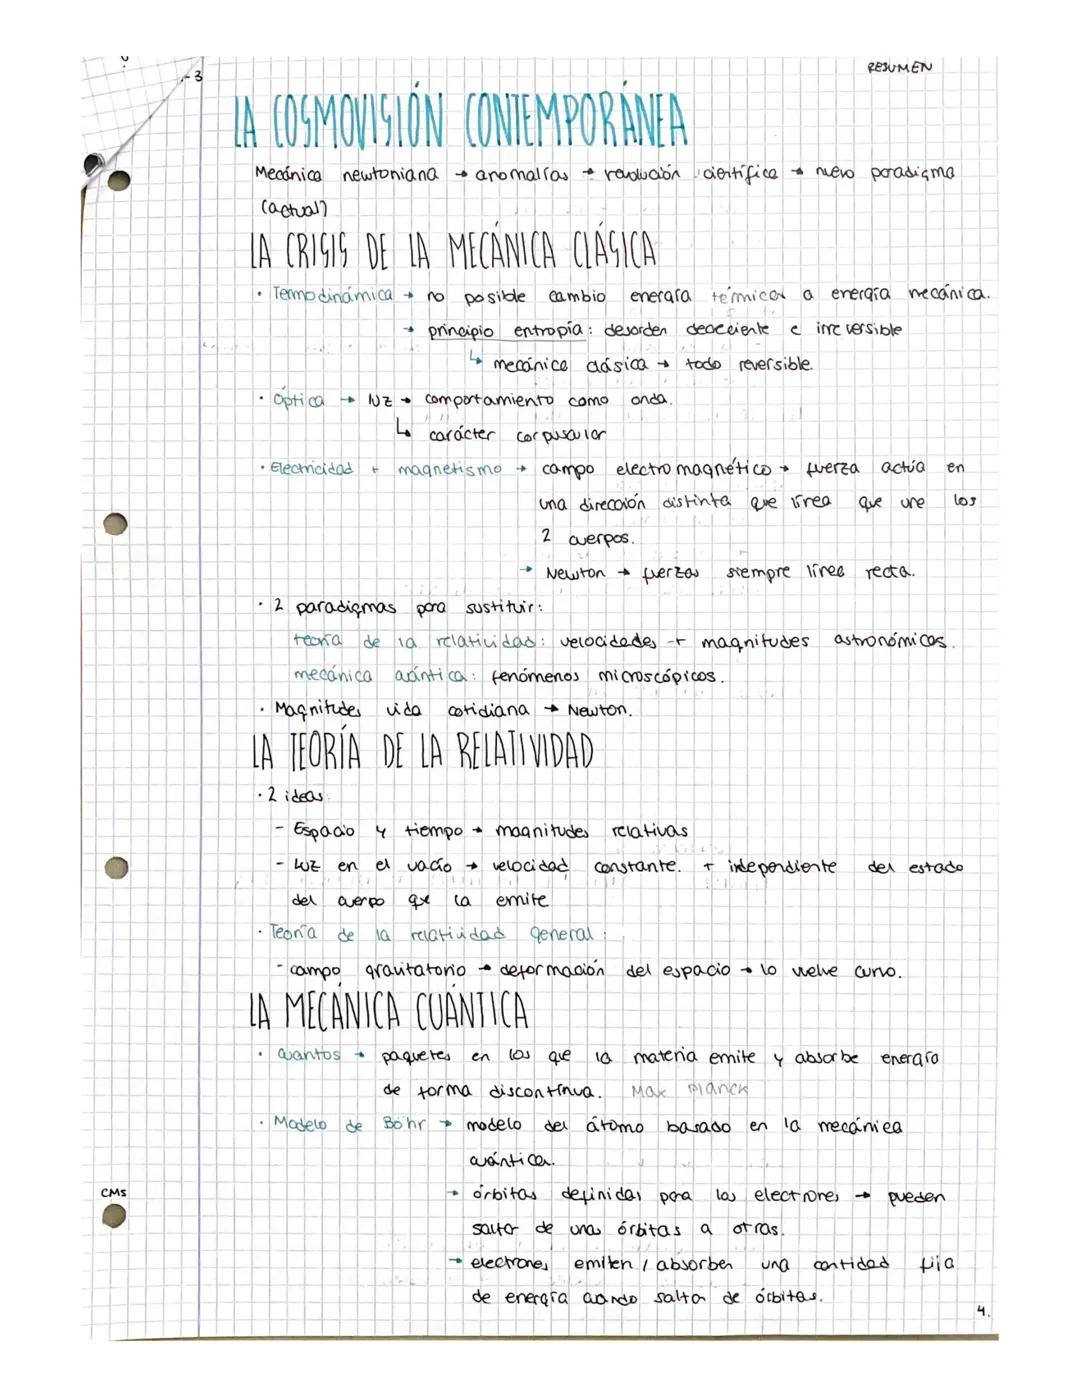 RESUMEN
- 3
LA COSMOVISIÓN CONTEMPORÁNEA
Mecánica newtoniana → anomalías → revolución científica → nuevo paradigma
(actual)
LA CRISIS DE LA MECÁNICA CLÁSICA
· Termodinámica → no posible cambio energía térmica a energía mecánica.
→ principio entropía: desorden creciente e irreversible
↳ mecánica clásica → todo reversible.
· Óptica → luz → comportamiento como onda.
↳ carácter corpuscular
· Electricidad + magnetismo → campo electromagnético → fuerza actúa en
una dirección distinta que línea que une los
2 cuerpos.
→ Newton → fuerzas siempre línea recta.
· 2 paradigmas para sustituir:
teoría de la relatividad: velocidades + magnitudes astronómicas.
mecánica cuántica: fenómenos microscópicos.
· Magnitudes vida cotidiana → Newton.
LA TEORÍA DE LA RELATIVIDAD
· 2 ideas:
- Espacio y tiempo → magnitudes relativas
- Luz en el vacío → velocidad constante. + independiente del estado
del cuerpo que la emite
· Teoría de la relatividad general:
- campo gravitatorio → deformación del espacio → lo vuelve curvo.
LA MECÁNICA CUÁNTICA
· Cuantos → paquetes en los que la materia emite y absorbe energía
de forma discontínua. Max Planck
· Modelo de Böhr → modelo del átomo basado en la mecánica
cuántica.
→ órbitas definidas para los electrones → pueden
saltar de unas órbitas a otras.
→ electrones emiten / absorben una cantidad fija
de energía cuando saltan de órbitas.
CMS
4.